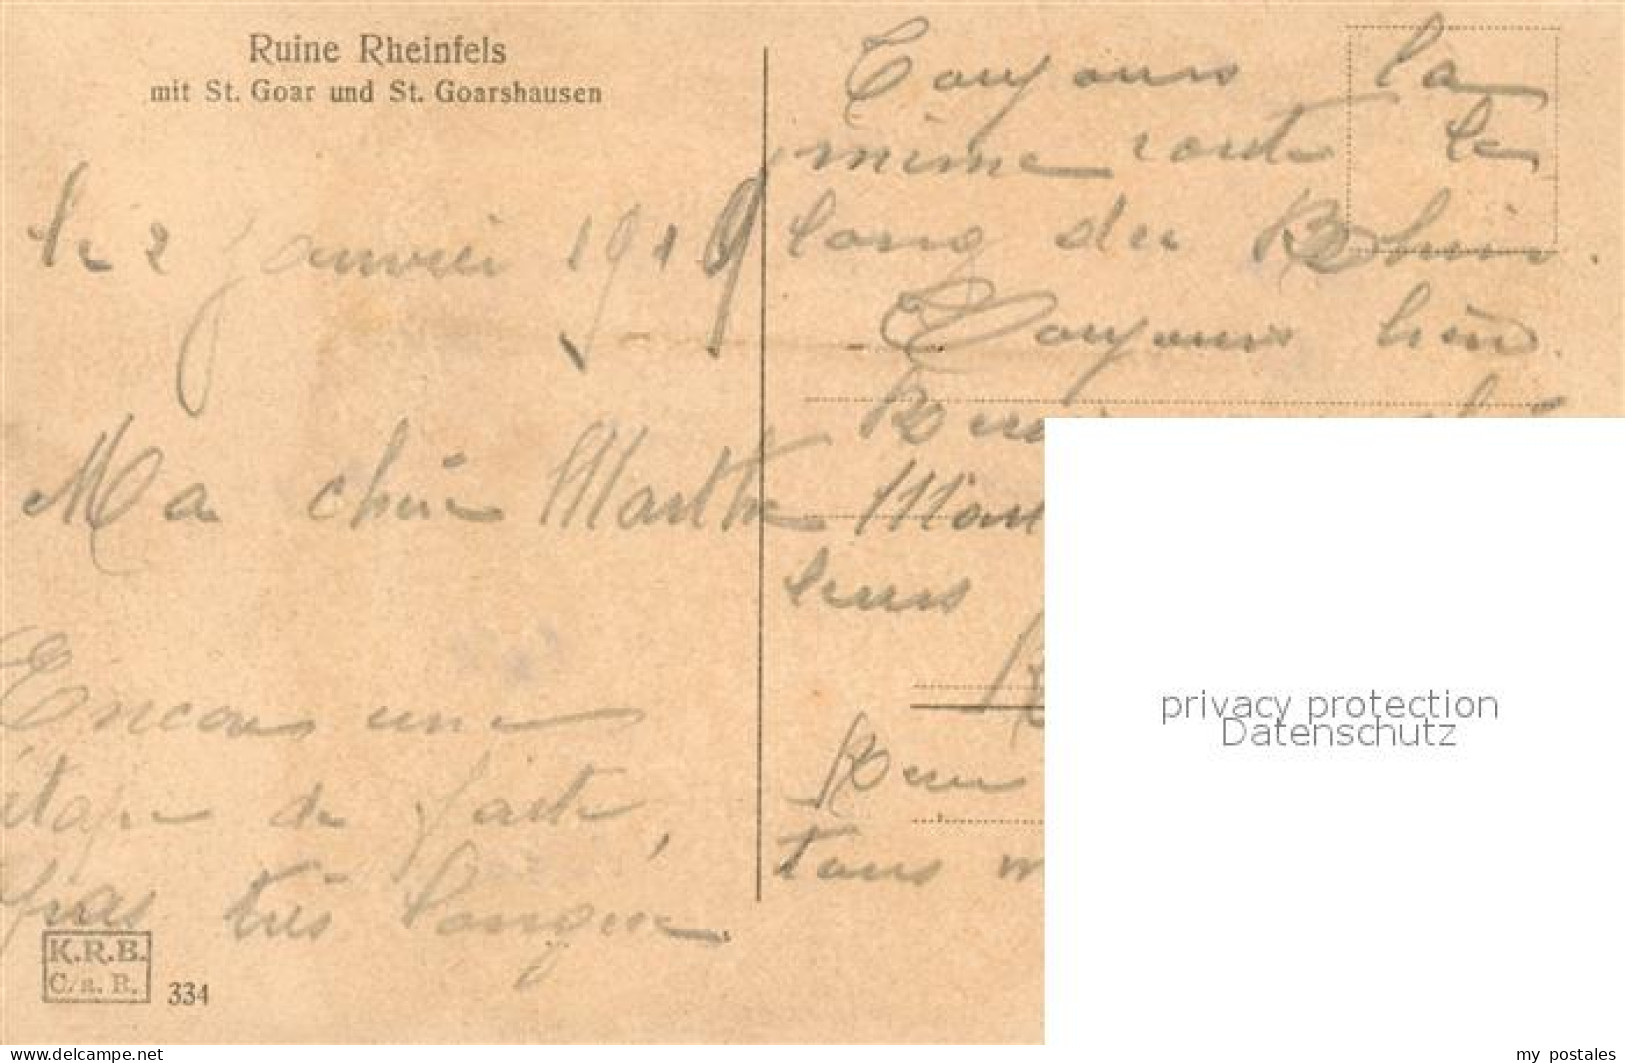 Ruine Rheinfels
mit St. Goar und St. Goarshausen
le 2 janvier 1919
Ma chère Marthe
Encore une
étape de faite,
pas très longue.
K.R.B.
C/a. R.
334
Toujours la
même route le
long du Rhin.
Toujours bien.
leurs
tous
privacy protection
Datenschutz
www.delcampe.net
my_postales